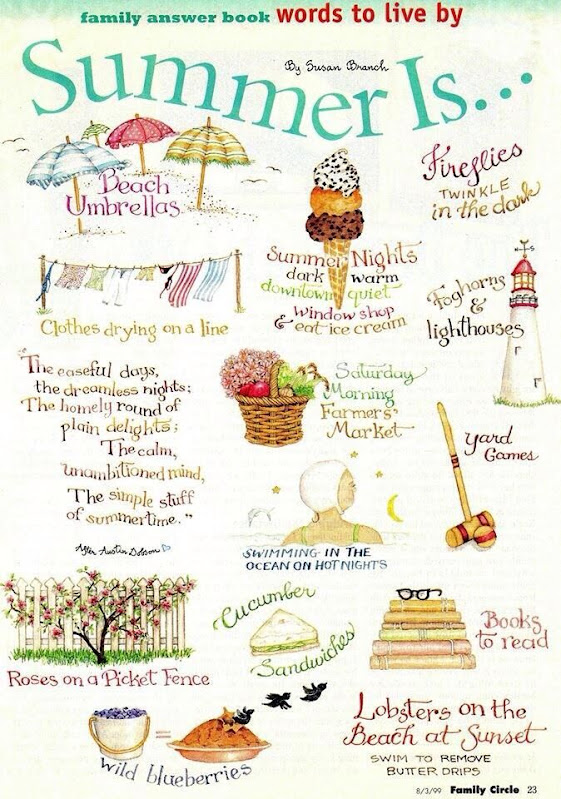 family answer book words to live by
Summer Is...
By Susan Branch
Beach
Umbrellas
Fireflies
TWINKLE
in the dark
Summer Nights
dark warm
downtown quiet
window shop
& eat ice cream
Clothes drying on a line
Foghorns
&
lighthouses
"The easeful days,
the dreamless nights;
The homely round of
plain delights;
The calm,
unambitioned mind,
The simple stuff
of summertime."
After Austin Dobson
Saturday
Morning
Farmers'
Market
Yard
Games
SWIMMING IN THE
OCEAN ON HOT NIGHTS
Roses on a Picket Fence
Cucumber
Sandwiches
Books
to read
wild blueberries
=
Lobsters on the
Beach at Sunset
SWIM TO REMOVE
BUTTER DRIPS
8/3/99 Family Circle 23